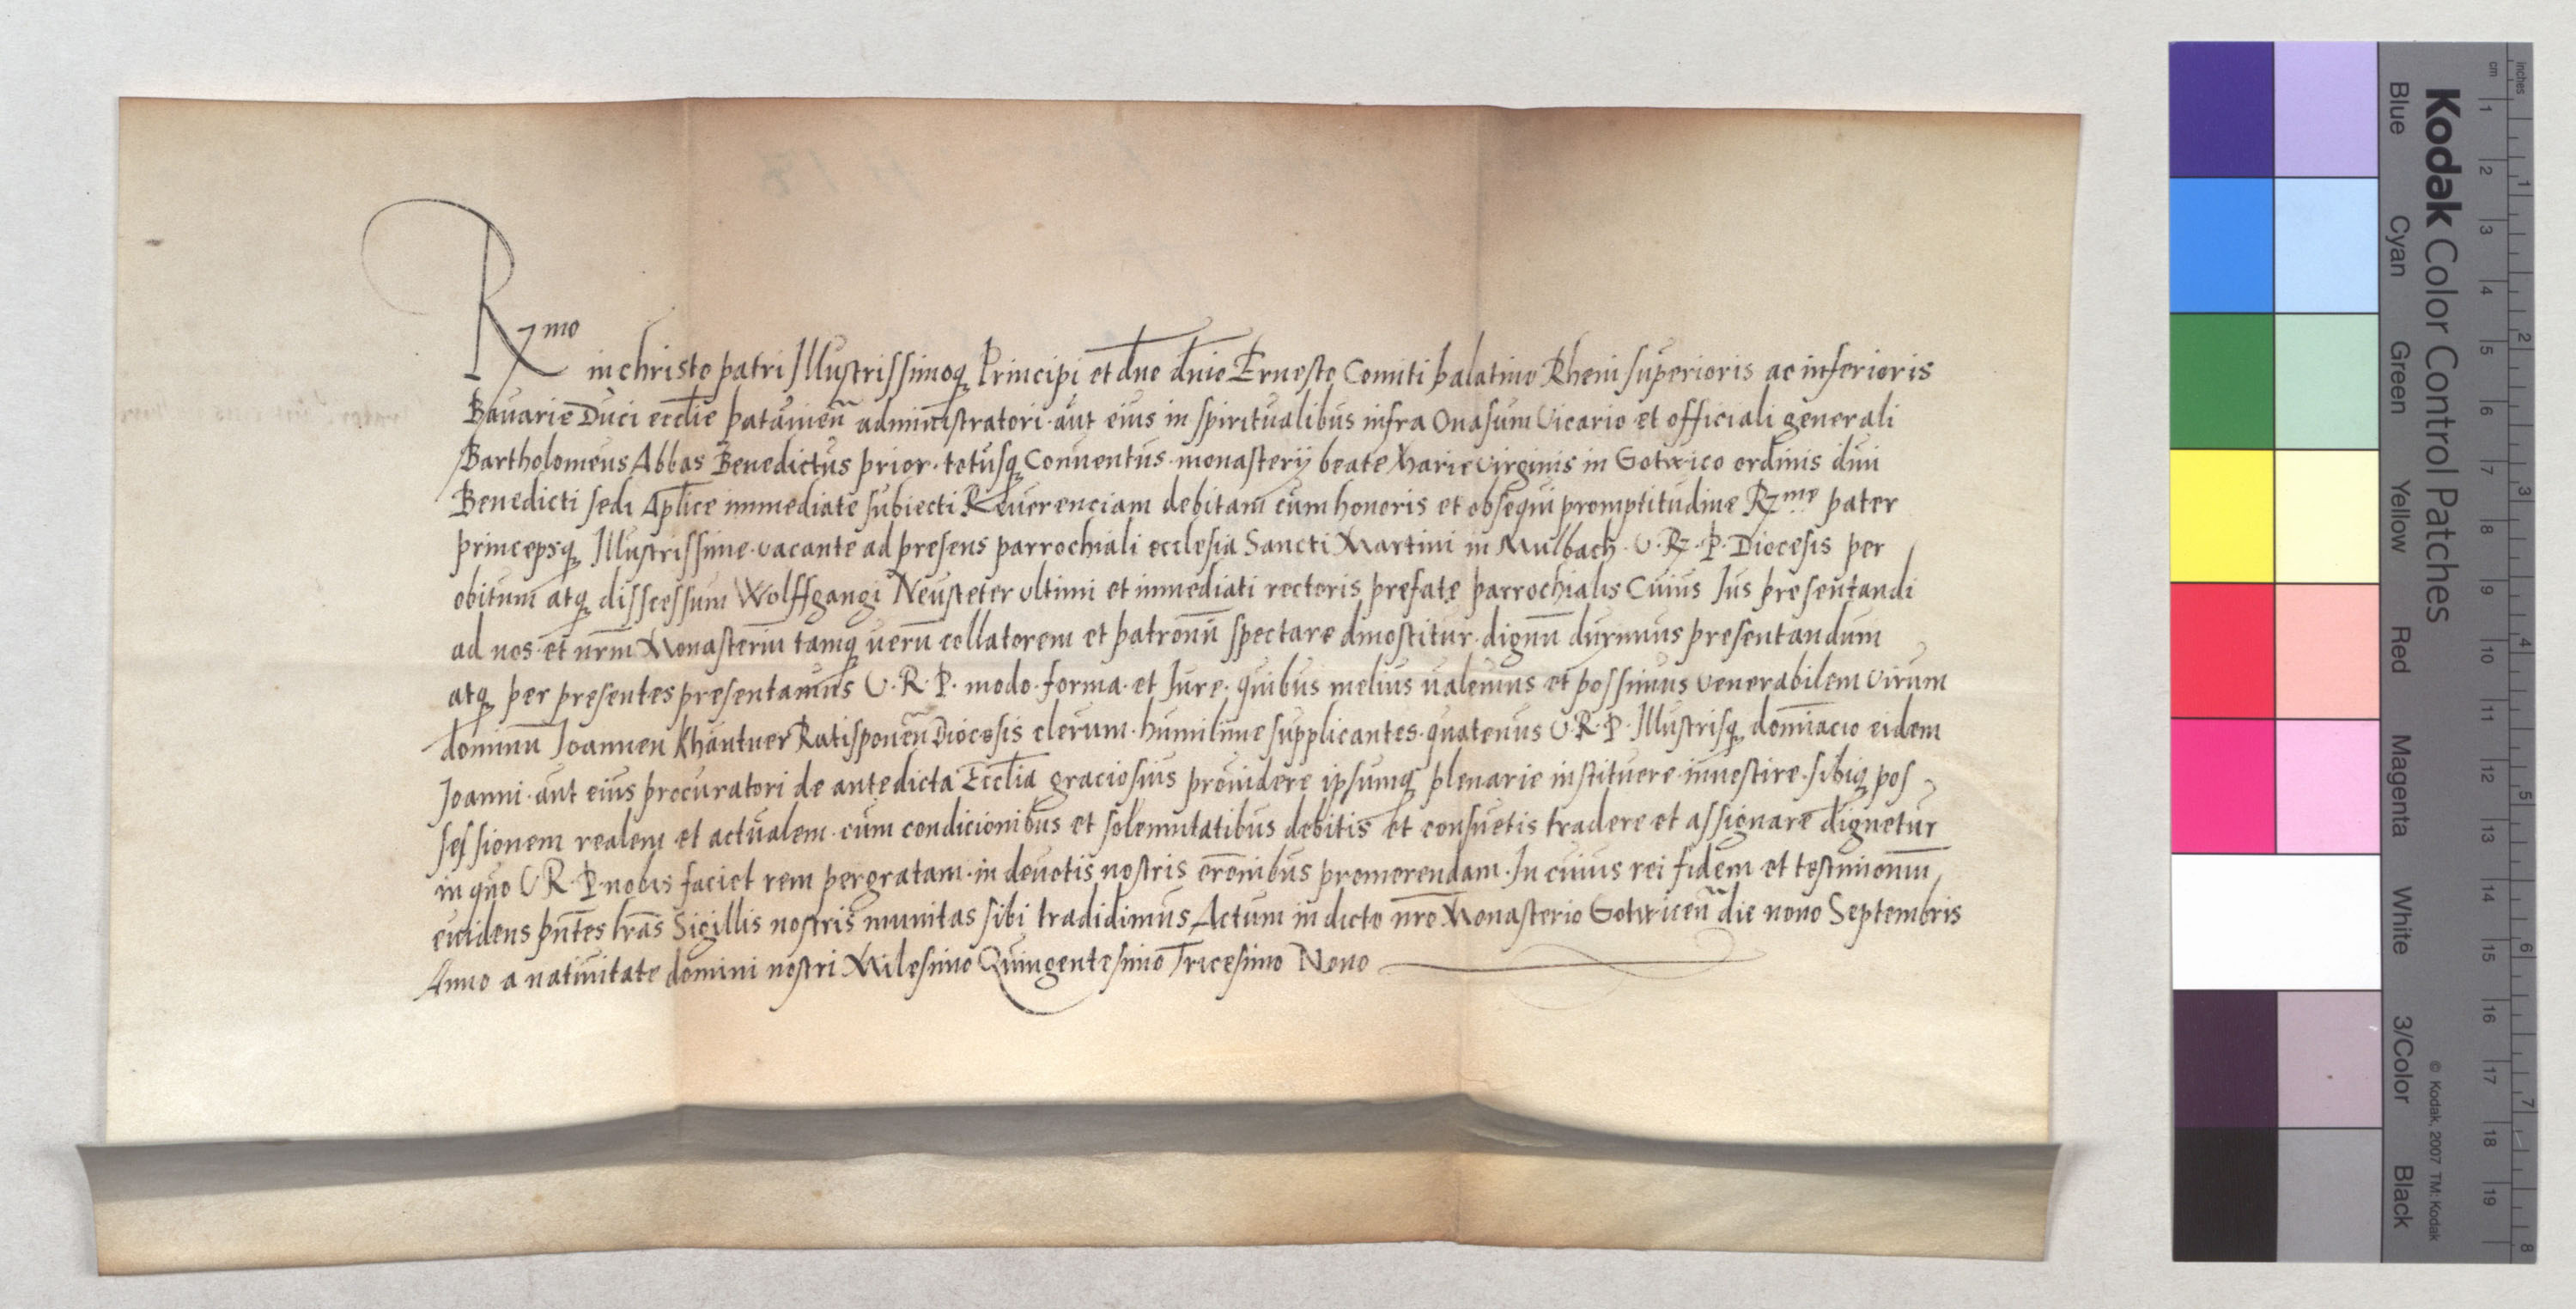 R mo in christo patri Illustrissimoq Principi et dno dnio Ernesto Comiti palatino Rheni superioris ac inferioris
Bavarie Duci ecclie patavien̄ administratori aut eius in spiritualibus infra Onasum Vicario et officiali generali
Bartholomeus Abbas Benedictus prior totusq Conventus monasterij beate Marie virginis in Gotwico ordinis divi
Benedicti sedi Aplice immediate subiecti Reverenciam debitam cum honoris et obsequii promptitudine R me pater
princepsq Illustrissime vacante ad presens parrochiali ecclesia Sancti Martini in Mulbach V. R. P. Diocesis per
obitum atq discessum Wolffgangi Neusteter ultimi et immediati rectoris prefate parrochialis Cuius Ius presentandi
ad nos et nrm Monasteriu tamq veru collatorem et patronu spectare dinostitur dignu duximus presentandum
atq per presentes presentamus V. R. P. modo forma et Iure quibus melius valemus et possimus venerabilem virum
dominu Joannen Khäntner Ratisponen̄ Diocesis clerum humilime supplicantes quatenus V. R. P. Illustrisq dominacio eidem
Joanni aut eius procuratori de antedicta Ecclia graciosius providere ipsumq plenarie instituere investire sibiq pos
sessionem realem et actualem cum condicionibus et solennitatibus debitis et consuetis tradere et assignare dignetur
in quo V. R. P. nobis faciet rem pergratam in devotis nostris orōnibus promerendam In cuius rei fidem et testimoniu
evidens pntes lras Sigillis nostris munitas sibi tradidimus Actum in dicto nro Monasterio Gotwicen̄ die nono Septembris
Anno a nativitate domini nostri Milesimo Quingentesimo Tricesimo Nono
Kodak Color Control Patches
Blue Cyan Green Yellow Red Magenta White 3/Color Black
© Kodak, 2007 TM: Kodak
inches 1 2 3 4 5 6 7 8
cm 1 2 3 4 5 6 7 8 9 10 11 12 13 14 15 16 17 18 19